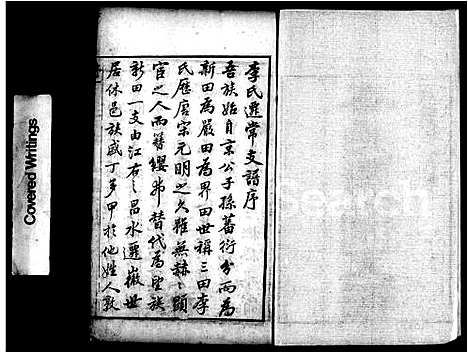 李氏遷常支譜序
吾族始自京公子孫蕃衍分而為
新田為嚴田為界田世稱三田李
氏歷唐宋元明之久雖無赫々顯
宦之人而簪纓弗替代為望族
新田一支由江右之昌水遷徽世
居休邑族盛丁多甲於他姓人敦
Covered Writings